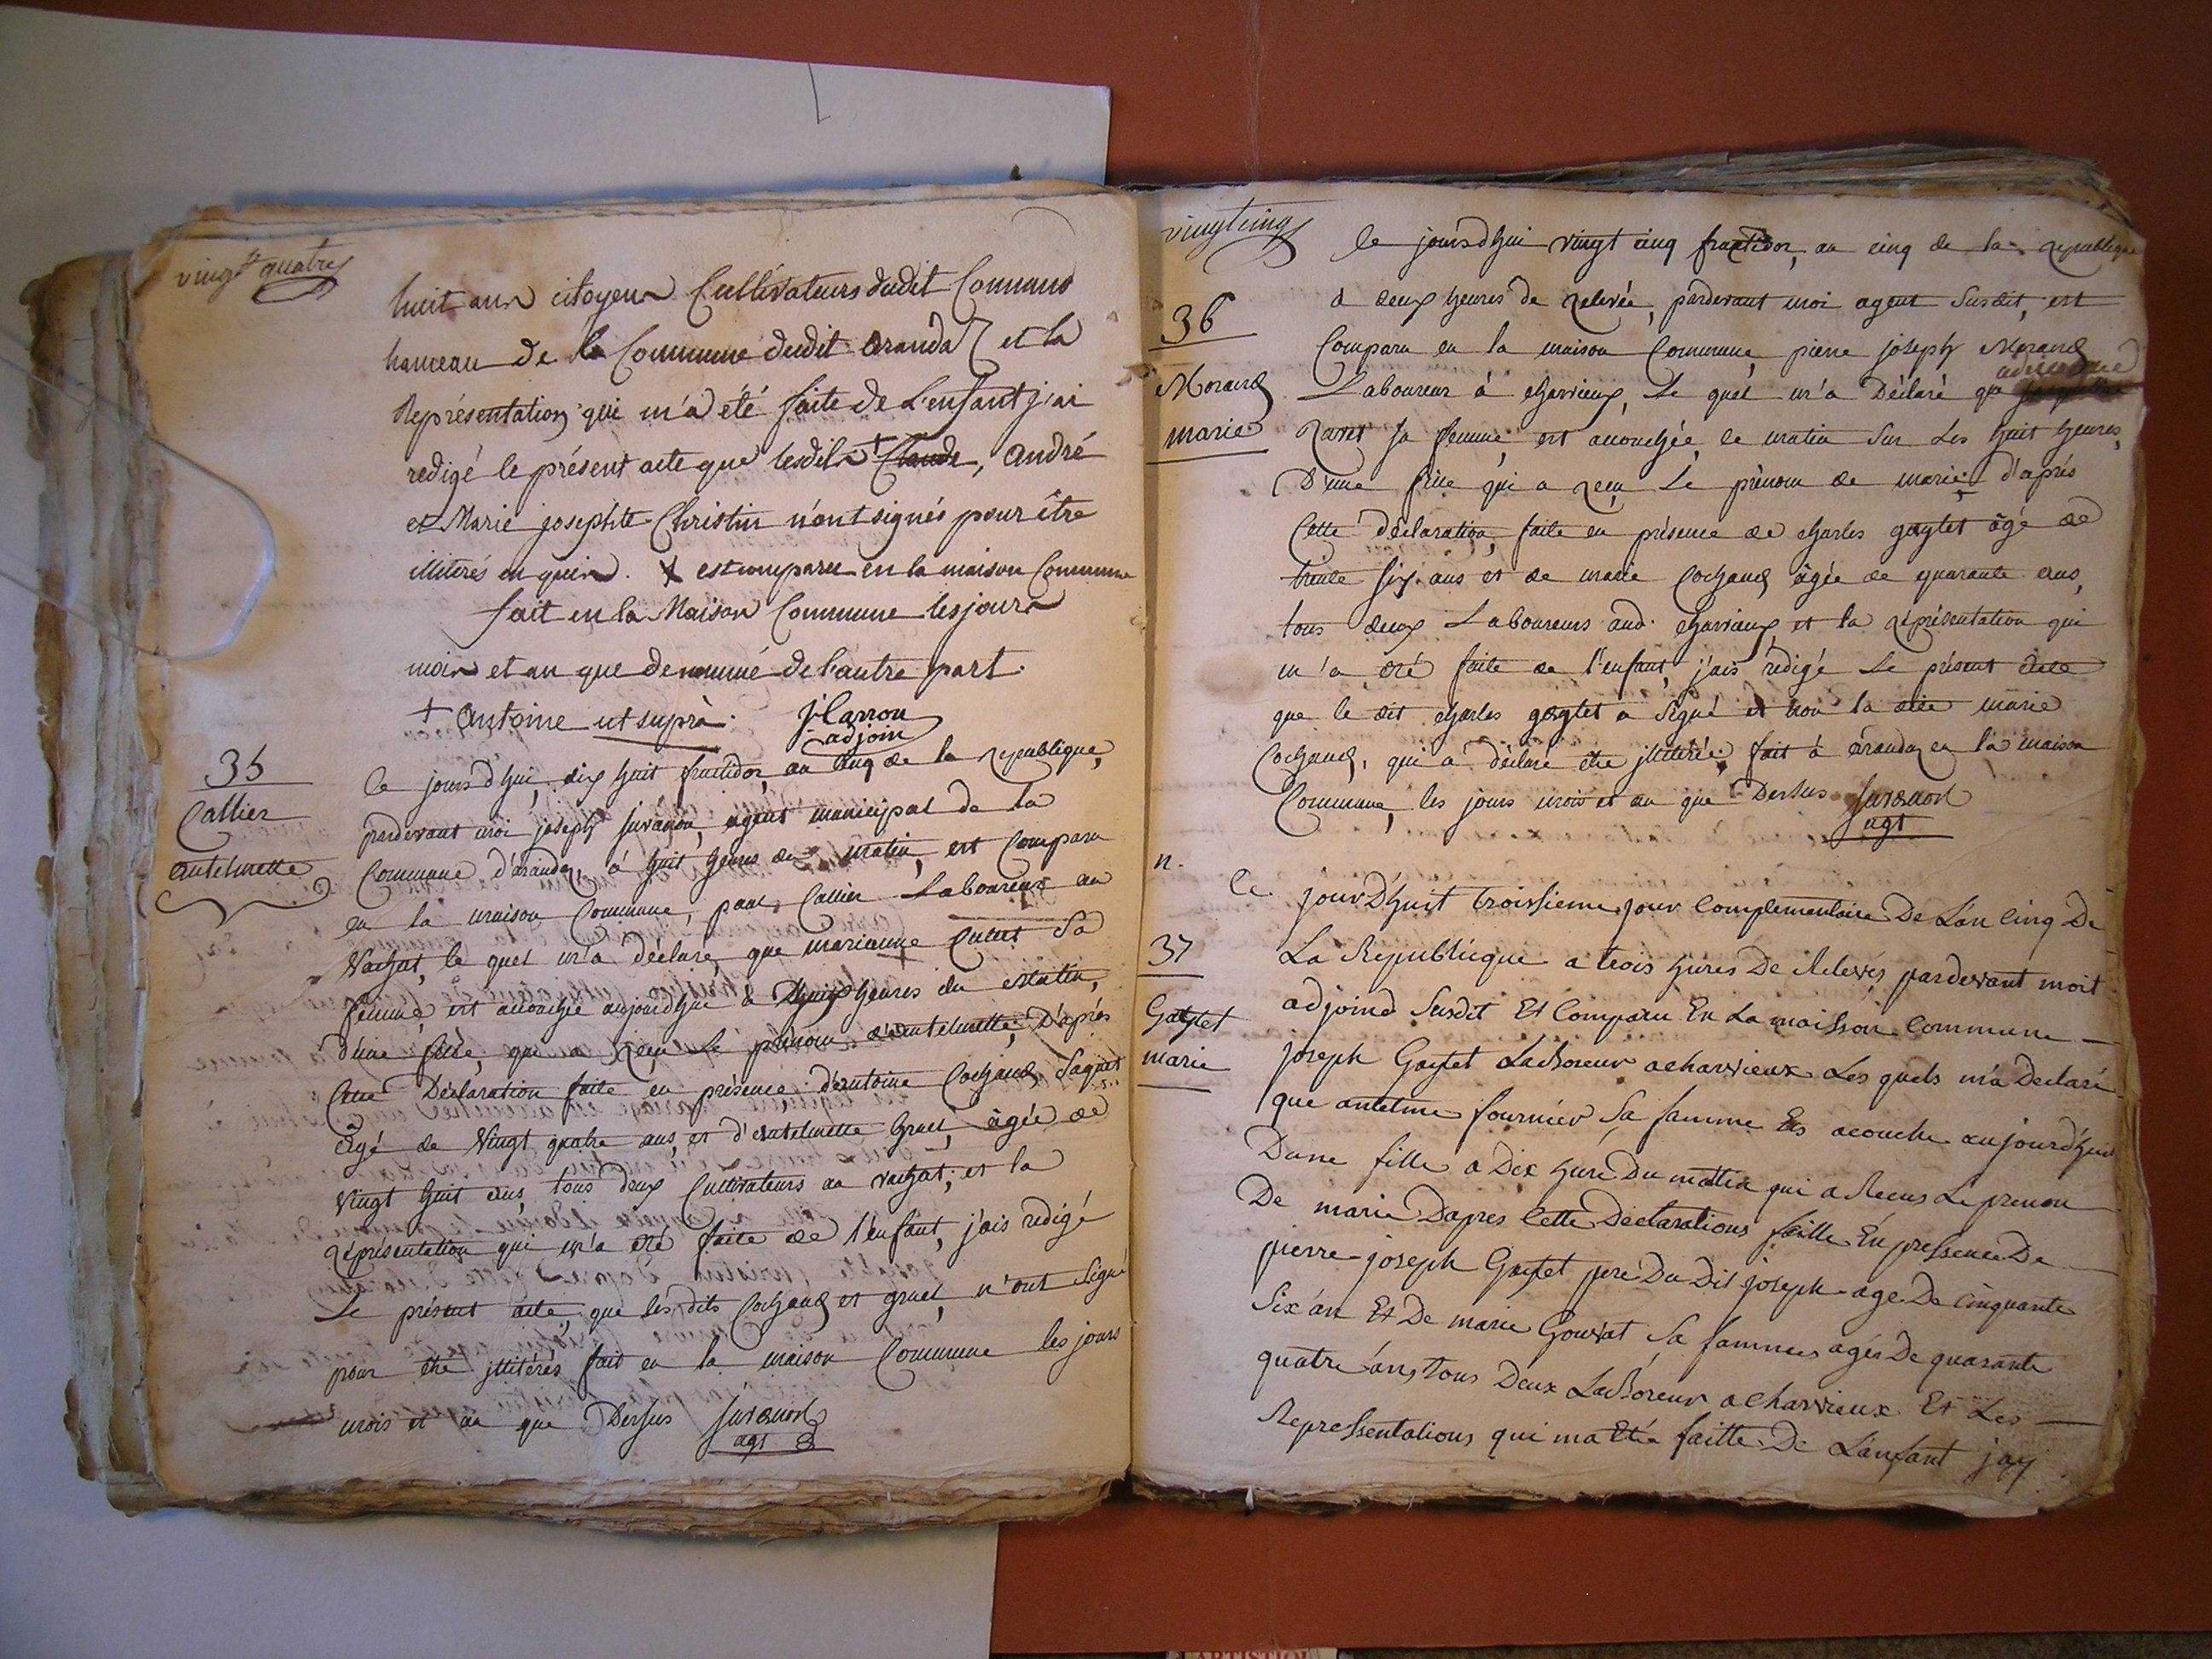 vingt quatre
huit ans citoyens Cultivateurs dudit Connand
hameau de la Commune dudit aranda et la
Représentation qui m'a été faite de L'enfant j'ai
redigé le présent acte que lesdits + Claude, André
et Marie josephte Christin n'ont signés pour être
illiterés enquis. X est comparu en la maison Commune
fait en la Maison Commune les jours
mois et an que denommé de l'autre part.
+ Antoine ut suprà. j Carron
adjoin
35
Callier
antelmette
Ce jourd'hui, dix huit fructidor, an cinq de la republique,
pardevant moi joseph juvanon, agent municipal de la
Commune d'arandaz, à huit heures du matin, est Comparu
en la maison Commune, paul Callier Laboureur au
Vachat, le quel m'a déclaré, que marianne Cullet Sa
femme, est accouchée aujourd'hui à heures du Matin,
d'une fille, qui a reçu Le prénom d'antelmette; D'après
Cette Déclaration faite en présence d'antoine Cochand, Saquet
âgé de Vingt quatre ans, et d'antelmette gruel, âgée de
Vingt huit ans, tous deux Cultivateurs au vachat; et la
représentation qui m'a été faite de l'enfant, j'ais redigé
Le présent acte, que les dits Cochand et gruel, n'ont Signé
pour être illitérés fait en la maison Commune les jours
mois et an que Dessus juvanon
agt
vingt cinq
le jourd'hui vingt cinq fructidor, an cinq de la republique
à deux heures de relevée, pardevant moi agent Susdit, est
36
Comparu en la maison Commune, pierre joseph Morand
Morand
Laboureur à charvieux, Le quel m'a Déclaré que
marie
Ravet sa femme, est accouchée, le matin Sur Les huit heures,
D'une fille qui a reçu Le prénom de marie; d'après
Cette déclaration, faite en présence de charles gaytet âgé de
trente six ans et de marie Cochand, âgée de quarante ans,
tous deux Laboureurs aud. charvieux, et la représentation qui
m'a été faite de l'enfant, j'ais rédigé Le présent acte
que le dit charles gaytet a Signé et non la dite marie
Cochand, qui a déclaré être illitérée; fait à arandaz en la maison
Commune, les jours mois et an que Dessus juvanon
agt
n.
Ce jourD'huit troissieme jour Complementaire De L'an Cinq De
37
La Republicque a trois hures De Relevés pardevant moit
adjoind Susdit Et Comparu En La maisson Commune
Gaytet
joseph Gaytet Laboreur a charvieux Les quels m'a Declaré
marie
que antelme fournier Sa famme Es acouche aujourd'hui
Dune fille a Dix hure Du matin qui a Recus Le prenom
De marie Dapres Cette Declarations faitte En pressence De
pierre joseph Gaytet pere Du Dit joseph age De Cinquante
Six an Et De marie Gouvat Sa fammes agés De quarante
quatre ans, tous Deux Laboreur a charvieux Et Les
Repressentations qui ma Eté faitte De L'anfant jay